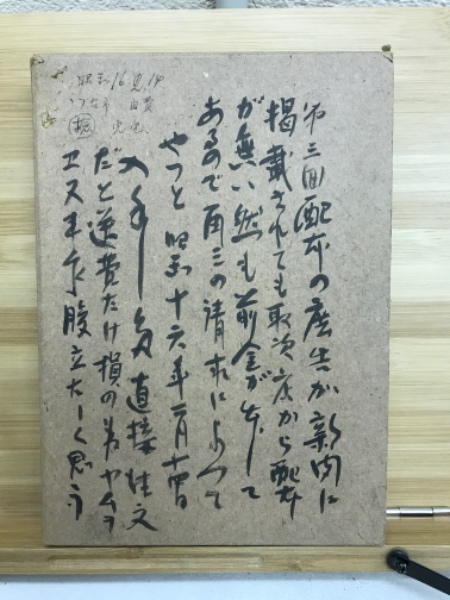 昭和16.2.14
第三回配本の広告が新聞に
掲載されても取次店から配本
が無い然も前金が出して
あるので再三の請求によつて
やつと昭和十六年二月十四日
入手し多 直接註文
だと送費だけ損の為ヤムヲ
エズ 腹立たしく思う